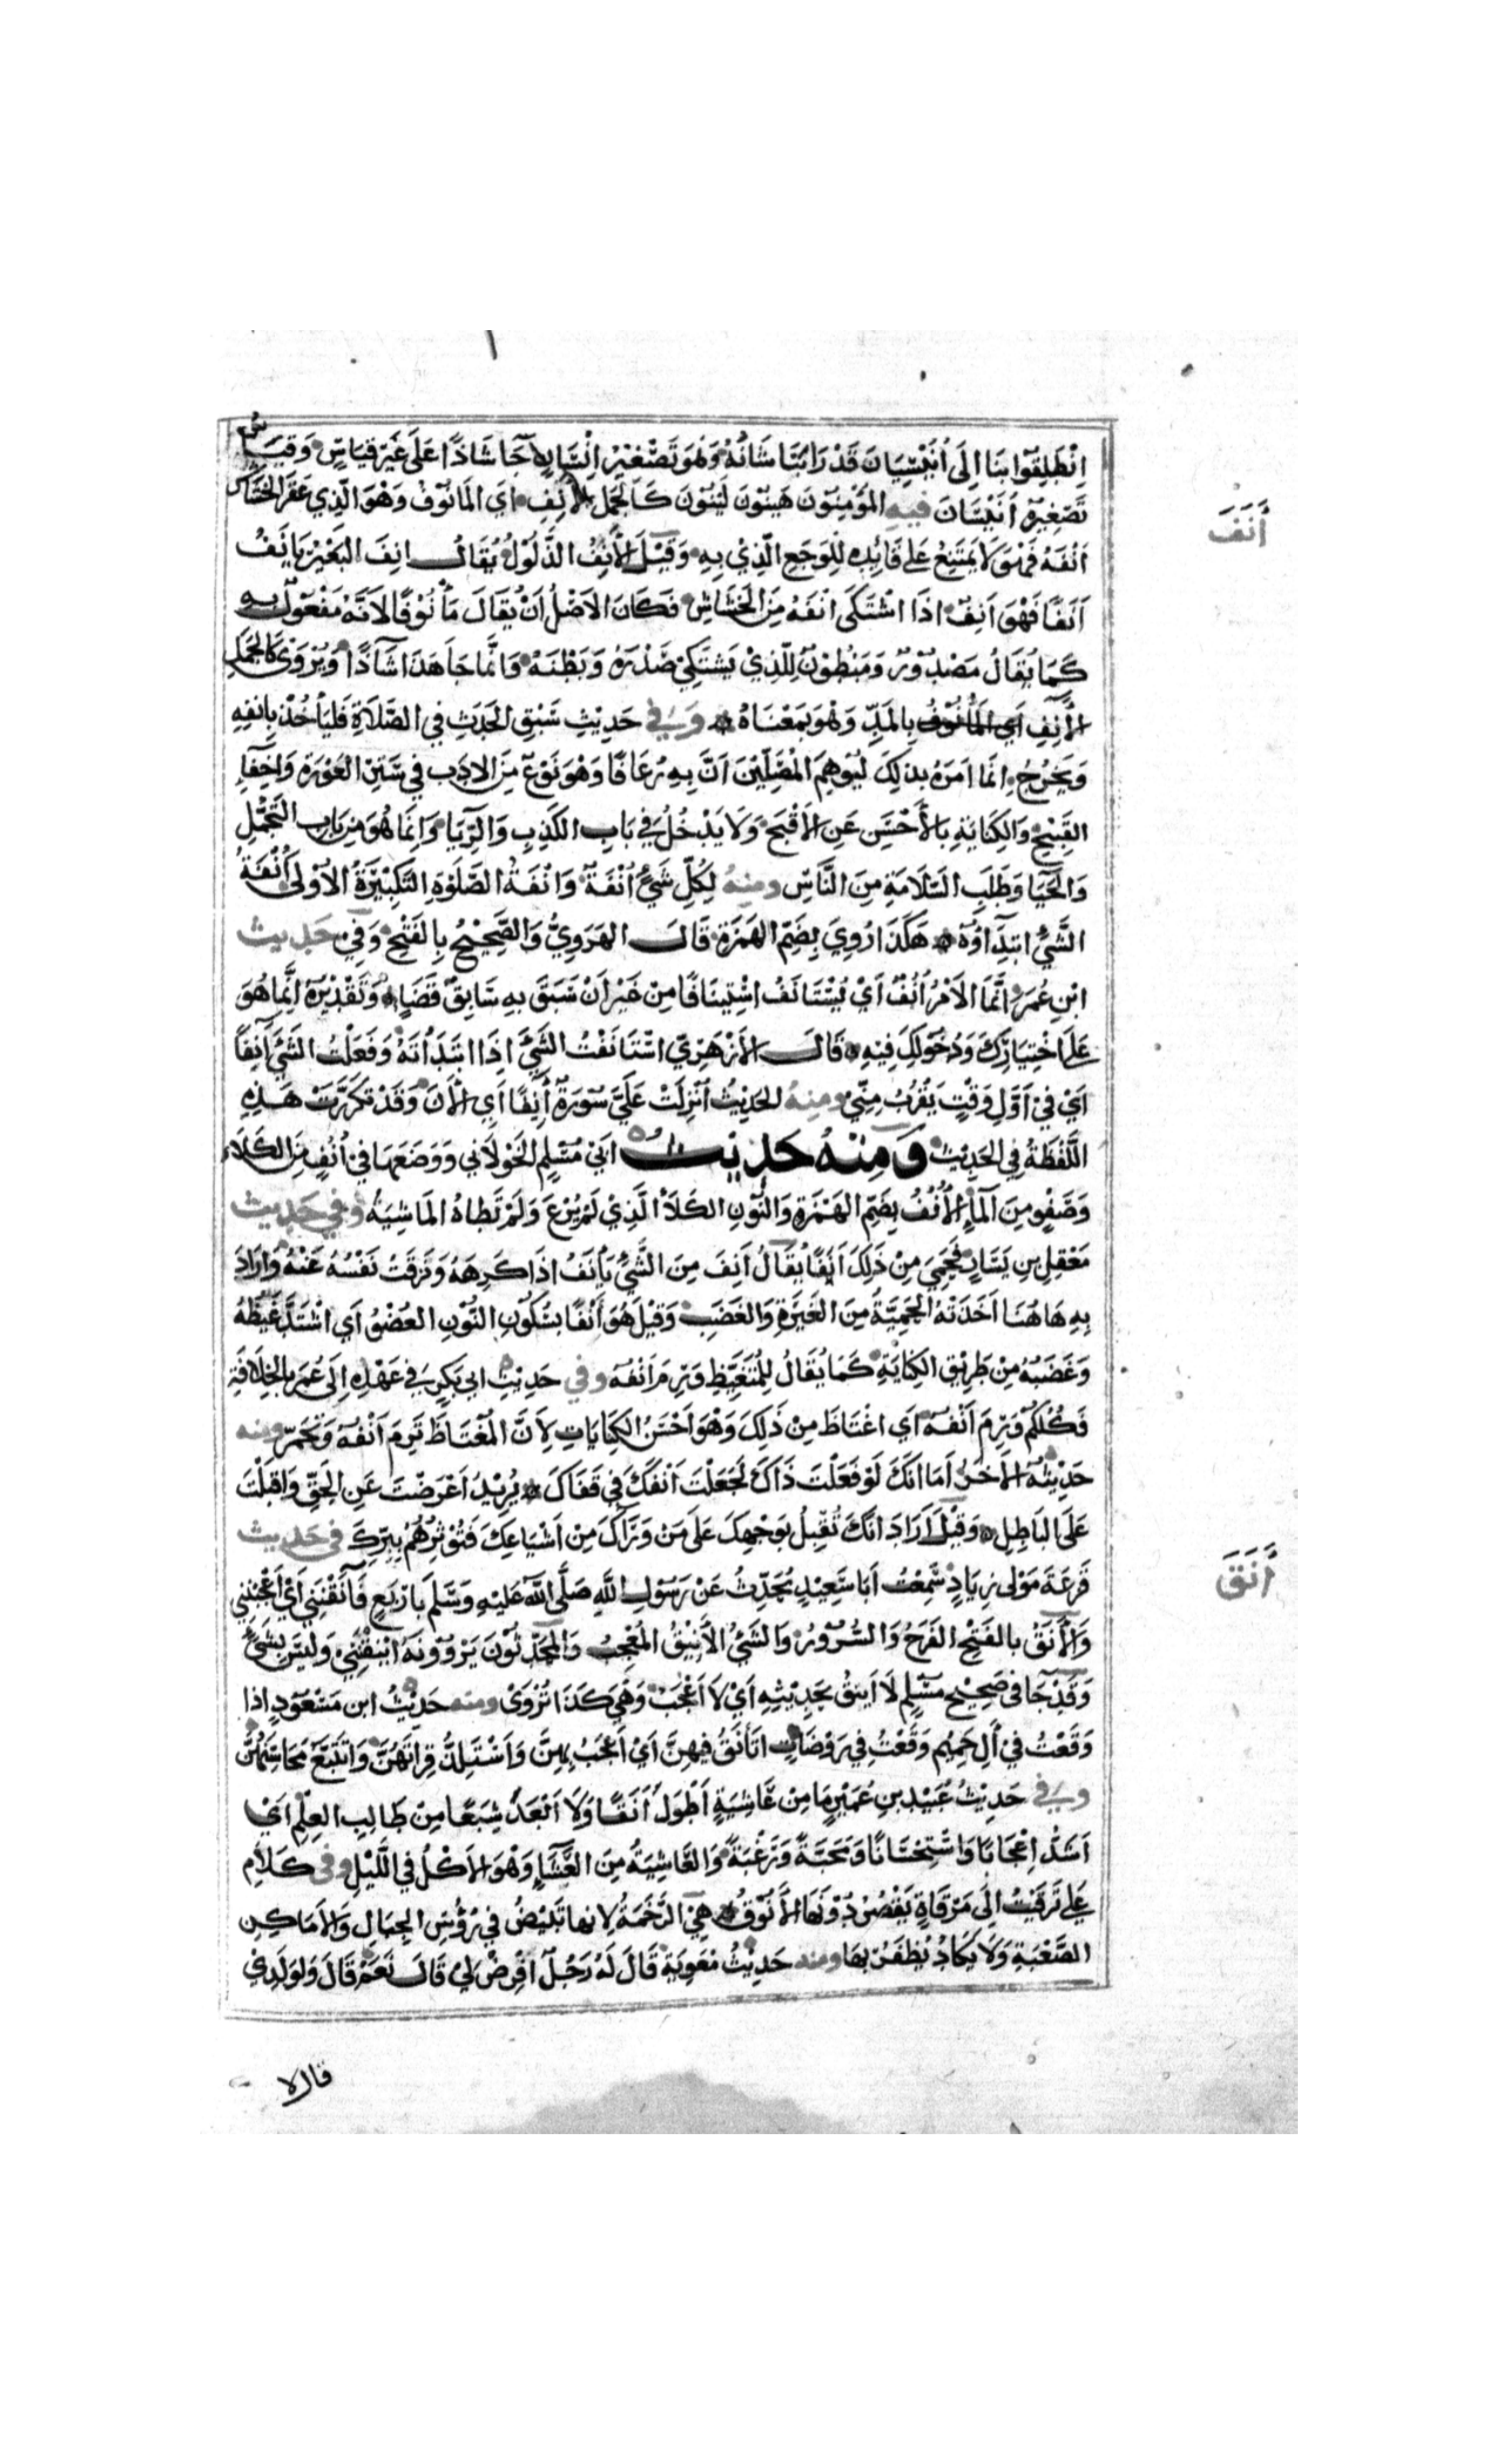 انْطَلِقُوا بِنَا إِلَى أُنَيْسِيَانَ قَدْ رَابَنَا شَأْنُهُ وَهُوَ تَصْغِيرُ إِنْسَانٍ جَا شَاذًّا عَلَى غَيْرِ قِيَاسٍ وَقِيَاسُ
تَصْغِيرِهِ أُنَيْسَانَ فيه المُؤْمِنُونَ هَيِّنُونَ لَيِّنُونَ كَالجَمَلِ الأَنِفِ أَيِ المَأْنُوفُ وَهُوَ الَّذِي عَقَرَ الخِشَاشُ
أَنْفَهُ فَهُوَ لَا يَمْتَنِعُ عَلَى قَائِدِهِ لِلْوَجَعِ الَّذِي بِهِ وَقِيلَ الأَنِفُ الذَّلُولُ يُقَالُ انِفَ البَعِيرُ يَانَفُ
أَنَفًا فَهُوَ أَنِفٌ اذَا اشْتَكَى أَنْفَهُ مِنَ الخِشَاشِ فَكَانَ الاَصْلُ أَنْ يُقَالَ مَأْنُوفًا لاَنَّهُ مَفْعُولٌ بِهِ
كَمَا يُقَالُ مَصْدُورٌ وَمَبْطُونٌ لِلَّذِي يَشْتَكِي صَدْرَهُ وَبَطْنَهُ وَانَّمَا جَا هَذَا شَاذًّا وَيُرْوَى كَالجَمَلِ
الآنِفِ أَيِ المَأْنُوفُ بِالمَدِّ وَهُوَ بِمَعْنَاهُ وَفِي حَدِيثِ سَبْقِ الحَدَثِ فِي الصَّلَاةِ فَلْيَأْخُذْ بِأَنْفِهِ
وَيَخْرُجُ انَّمَا أَمَرَهُ بِذَلِكَ لِيُوهِمَ المُصَلِّينَ أَنَّ بِهِ رُعَافًا وَهُوَ نَوْعٌ مِنَ الادَبِ فِي سَتْرِ العَوْرَةِ وَاخْفَاءِ
القَبِيحِ وَالكِنَايَةِ بِالأَحْسَنِ عَنِ الأَقْبَحِ وَلَا يَدْخُلُ فِي بَابِ الكَذِبِ وَالرِّيَا وَانَّمَا هُوَ مِنْ بَابِ التَّجَمُّلِ
وَالحَيَا وَطَلَبِ السَّلَامَةِ مِنَ النَّاسِ ومنهُ لِكُلِّ شَيْءٍ أُنْفَةٌ وَأُنْفَةُ الصَّلَوةِ التَّكْبِيرَةُ الأُوْلَى أُنْفَةُ
الشَّيْءِ ابْتِدَاؤُهُ هَكَذَا رُوِيَ بِضَمِّ الهَمْزَةِ قَالَ الهَرَوِيُّ وَالصَّحِيحُ بِالفَتْحِ وَفِي حَدِيث
ابْنِ عُمَرَ انَّمَا الأَمْرُ أُنُفٌ أَيْ يُسْتَانَفُ اسْتِينَافًا مِنْ غَيْرِ أَنْ سَبَقَ بِهِ سَابِقُ قَضَاءٍ وَتَقْدِيْرٍ انَّمَا هُوَ
عَلَى اخْتِيَارِكَ وَدُخُولِكَ فِيهِ قَالَ الأَزْهَرِيُّ اسْتَانَفْتُ الشَّيْءَ اذَا ابْتَدَأْتَهُ وَفَعَلْتُ الشَّيْءَ آنِفًا
أَيْ فِي أَوَّلِ وَقْتٍ يَقْرُبُ مِنِّي ومنهُ الحَدِيثُ أُنْزِلَتْ عَلَيَّ سُورَةٌ آنِفًا أَيِ الْآنَ وَقَدْ تَكَرَّرَتْ هَذِهِ
اللَّفْظَةُ فِي الحَدِيثِ وَمِنْهُ حَدِيثُ أَبِي مُسْلِمٍ الخَوْلَانِي وَوَضَعَهَا فِي أُنُفٍ مِنَ الكَلَاءِ
وَصَفْوٍ مِنَ المَاءِ الأُنُفُ بِضَمِّ الهَمْزَةِ وَالنُّونِ الكَلَأُ الَّذِي لَمْ يُرْعَ وَلَمْ تَطَاهُ المَاشِيَةُ وَفِي حَدِيث
مَعْقِلِ بنِ يَسَارٍ فَحَمِيَ مِنْ ذَلِكَ أَنَفًا يُقَالُ أَنِفَ مِنَ الشَّيْءِ يَأْنَفُ اذَا كَرِهَهُ وَشَرُفَتْ نَفْسُهُ عَنْهُ وَارَادَ
بِهِ هَاهُنَا أَخَذَتْهُ الحَمِيَّةُ مِنَ الغَيْرَةِ وَالغَضَبِ وَقِيلَ هُوَ أَنْفًا بِسُكُونِ النُّونِ العُضْوُ أَيِ اشْتَدَّ غَيْظُهُ
وَغَضَبُهُ مِنْ طَرِيقِ الكِنَايَةِ كَمَا يُقَالُ لِلْمُتَغَيِّظِ وَرِمَ أَنْفُهُ وفي حَدِيثِ ابِي بَكْرٍ فِي عَهْدِهِ إِلَى عُمَرَ بِالخِلَافَةِ
فَكُلُّكُمْ وَرِمَ أَنْفُهُ أَيِ اغْتَاظَ مِنْ ذَلِكَ وَهُوَ أَحْسَنُ الكِنَايَاتِ لِأَنَّ المُغْتَاظَ يَرِمُ أَنْفُهُ وَيَحْمَرُّ ومنه
حَدِيثُهُ الأَخَرُ أَمَا انَّكَ لَوْ فَعَلْتَ ذَاكَ لَجَعَلْتَ أَنْفَكَ فِي قَفَاكَ يُرِيدُ أَعْرَضْتَ عَنِ الحَقِّ وَاقْبَلْتَ
عَلَى البَاطِلِ وَقِيلَ أَرَادَ انَّكَ تُقْبِلُ بِوَجْهِكَ عَلَى مَنْ وَرَاكَ مِنْ أَشْيَاعِكَ فَتُوْثِرُهُمْ بِبِرِّكَ فى حَدِيث
قَزَعَةَ مَوْلَى زِيَادٍ سَمِعْتُ أَبَا سَعِيْدٍ يُحَدِّثُ عَنْ رَسُولِ اللهِ صَلَّى اللهُ عَلَيْهِ وَسَلَّمَ بِأَرْبَعٍ فَآنَقْنَنِي أَيْ أَعْجَبْنَنِي
وَالأَنَقُ بِالفَتْحِ الفَرَحُ وَالسُّرُورُ وَالشَّيْءُ الأَنِيْقُ المُعْجِبُ وَالمُحَدِّثُونَ يَرْوُونَهُ أَيْنَقْنَنِي وَلَيْسَ بِشَيْءٍ
وَقَدْ جَا فِي صَحِيحِ مُسْلِمٍ لَا أَينَقُ بِحَدِيثِهِ أَيْ لَا أُعْجَبُ وَهِيَ كَذَا تُرْوَى ومنه حَدِيثُ ابن مَسْعُودٍ اذا
وَقَعْتُ فِي أَلِ حَمِيمٍ وَقَعْتُ فِي رَوْضَاتٍ اتَأَنَّقُ فِيهِنَّ أَيْ أُعْجَبُ بِهِنَّ وَأَسْتَلِذُّ قِرَاتَهُنَّ وَاتَتَبَّعُ مَحَاسِنَهُنَّ
وَفِي حَدِيثُ عُبَيْدِ بنِ عُمَيْرٍ مَا مِنْ عَاشِيَةٍ أَطْوَلُ أَنَقًا وَلَا أَبْعَدُ شِبَعًا مِنْ طَالِبِ العِلْمِ أَيْ
أَشَدُّ إِعْجَابًا وَاسْتِحْسَانًا وَمَحَبَّةً وَرَغْبَةً وَالعَاشِيَةُ مِنَ العَشَاءِ وَهُوَ الأَكْلُ فِي اللَّيْلِ وفى كَلَامِ
عَلِيٍّ تَرَقَّيْتُ إِلَى مَرْقَاةٍ يَقْصُرُ دُونَهَا الأَنُوقُ هِيَ الرَّخَمَةُ لانها تَبِيضُ فِي رُؤُسِ الجِبَالِ وَالأَمَاكِنِ
الصَّعْبَةِ وَلَا يَكَادُ يُظْفَرُ بِهَا ومنه حَدِيثُ مُعَوِيَةَ قَالَ لَهُ رَجُلٌ افْرِضْ لِي قَالَ نَعَمْ قَالَ وَلِوَلَدِي
أَنَفَ
أَنَقَ
قال لا